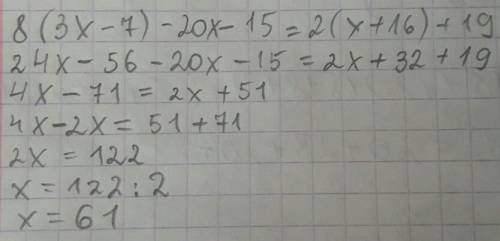 8(3x-7)-20x-15=2(x+16)+19
24x-56-20x-15=2x+32+19
4x-71=2x+51
4x-2x=51+71
2x=122
x=122:2
x=61